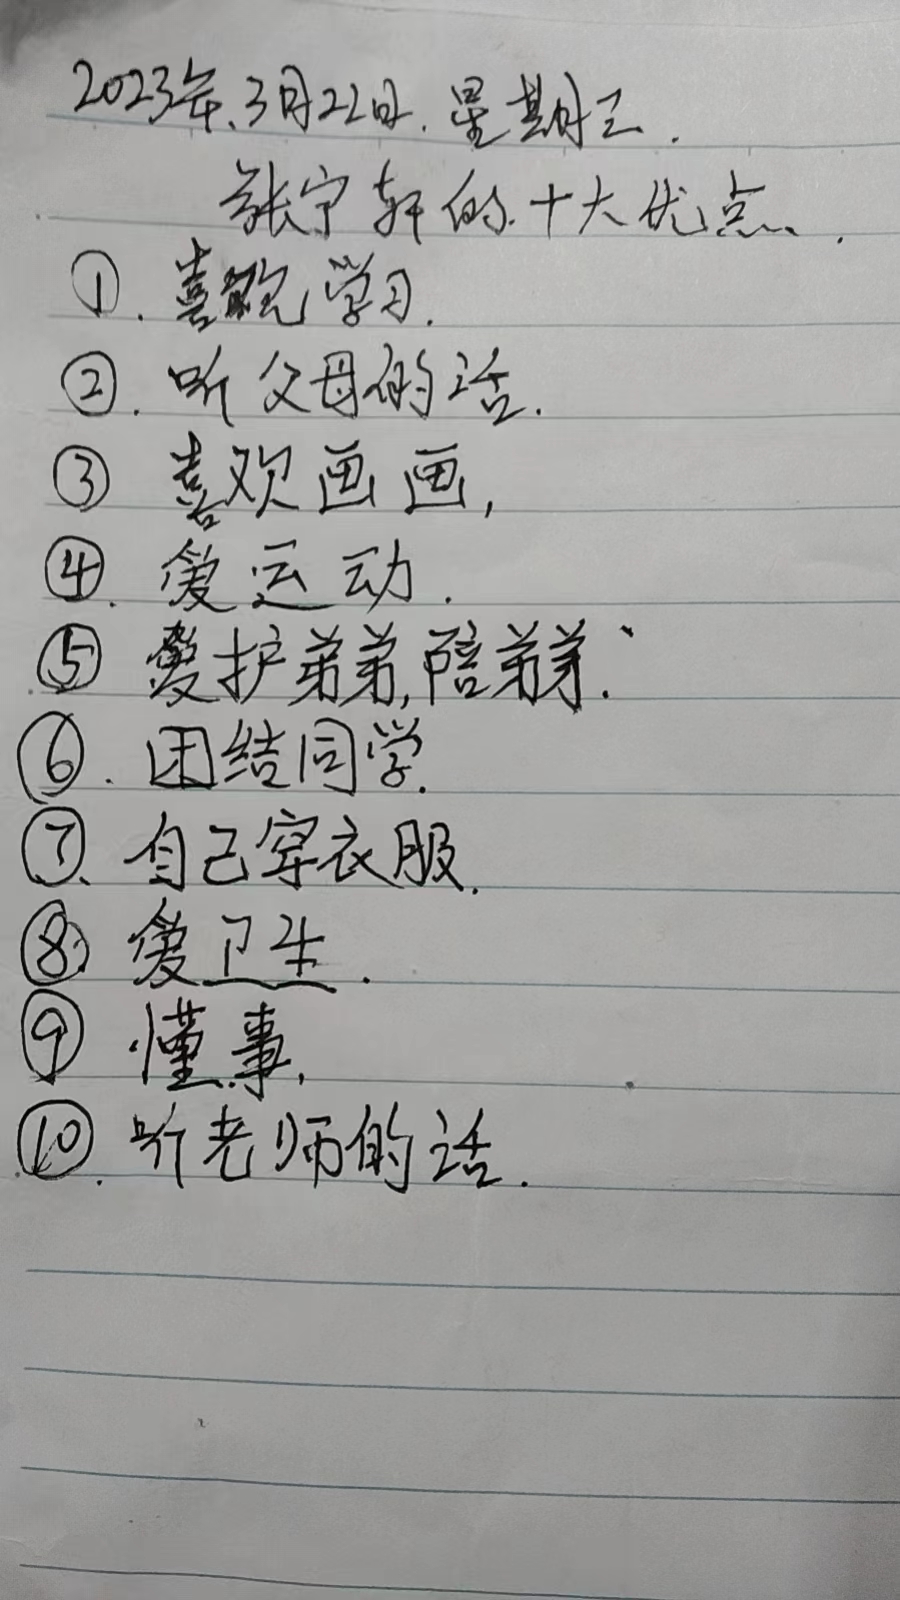 2023年.3月22日.星期三.
张宁轩的十大优点.
①.喜欢学习.
②.听父母的话.
③喜欢画画,
④.爱运动.
⑤爱护弟弟,陪弟弟.
⑥.团结同学.
⑦.自己穿衣服.
⑧爱卫生.
⑨懂事,
⑩.听老师的话.